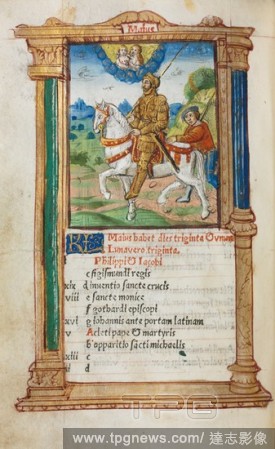 Maius
KL Maius habet dies triginta & unum
Luna vero triginta.
Philippi & Jacobi
c sigismundi regis
xix d inventio sancte crucis
viii e sancte monice
f gothardi episcopi
xvi g iohannis ante portam latinam
v A cleti pape & martyris
b apparitio sācti michaelis
xiii c
ii d
www.tpgnews.com/達志影像